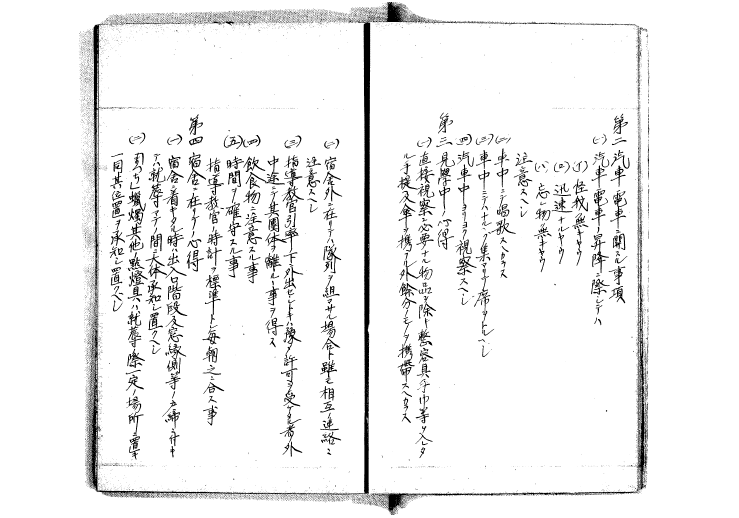 第二 汽車電車ニ関スル事項
(一) 汽車電車ノ昇降ニ際シテハ
(イ) 怪我無キヤウ
(ロ) 迅速ナルヤウ
(ハ) 忘物無キヤウ
注意スヘシ
(二) 車中ニテ唱歌スヘカラス
(三) 車中ニテハナルヘク集リテ席ヲトルヘシ
(四) 汽車中ヨリヨク視察スヘシ
第三 見学中ノ心得
(一) 直接視察ニ必要ナル物品ヲ除キ整容具手巾等ヲ入レタ
ル手提及傘ヲ携フル外餘分ノモノヲ携帯スヘカラス
(二) 宿舎外ニ在リテハ隊列ヲ組マサル場合ト雖モ相互ノ連絡ニ
注意スヘシ
(三) 指導教官引率ノ下ニ外出セントキハ豫メ許可ヲ受ケタル者ノ外
中途ニテ其團体ヲ離ルヽ事ヲ得ス
(四) 飲食物ニ注意スル事
(五) 時間ヲ確守スル事
指導教官ノ時計ヲ標準トシ毎朝之ニ合ス事
第四 宿舎ニ在リテノ心得
(一) 宿舎ニ着キタル時ハ出入口階段及窓縁側等ノ
ハ就蓐マテノ間ニ大体承知シ置クヘシ
(二) 蠟燭其他點燈具ハ就蓐ノ際一定ノ場所ニ置キ
一同其位置ヲ承知シ置クヘシ